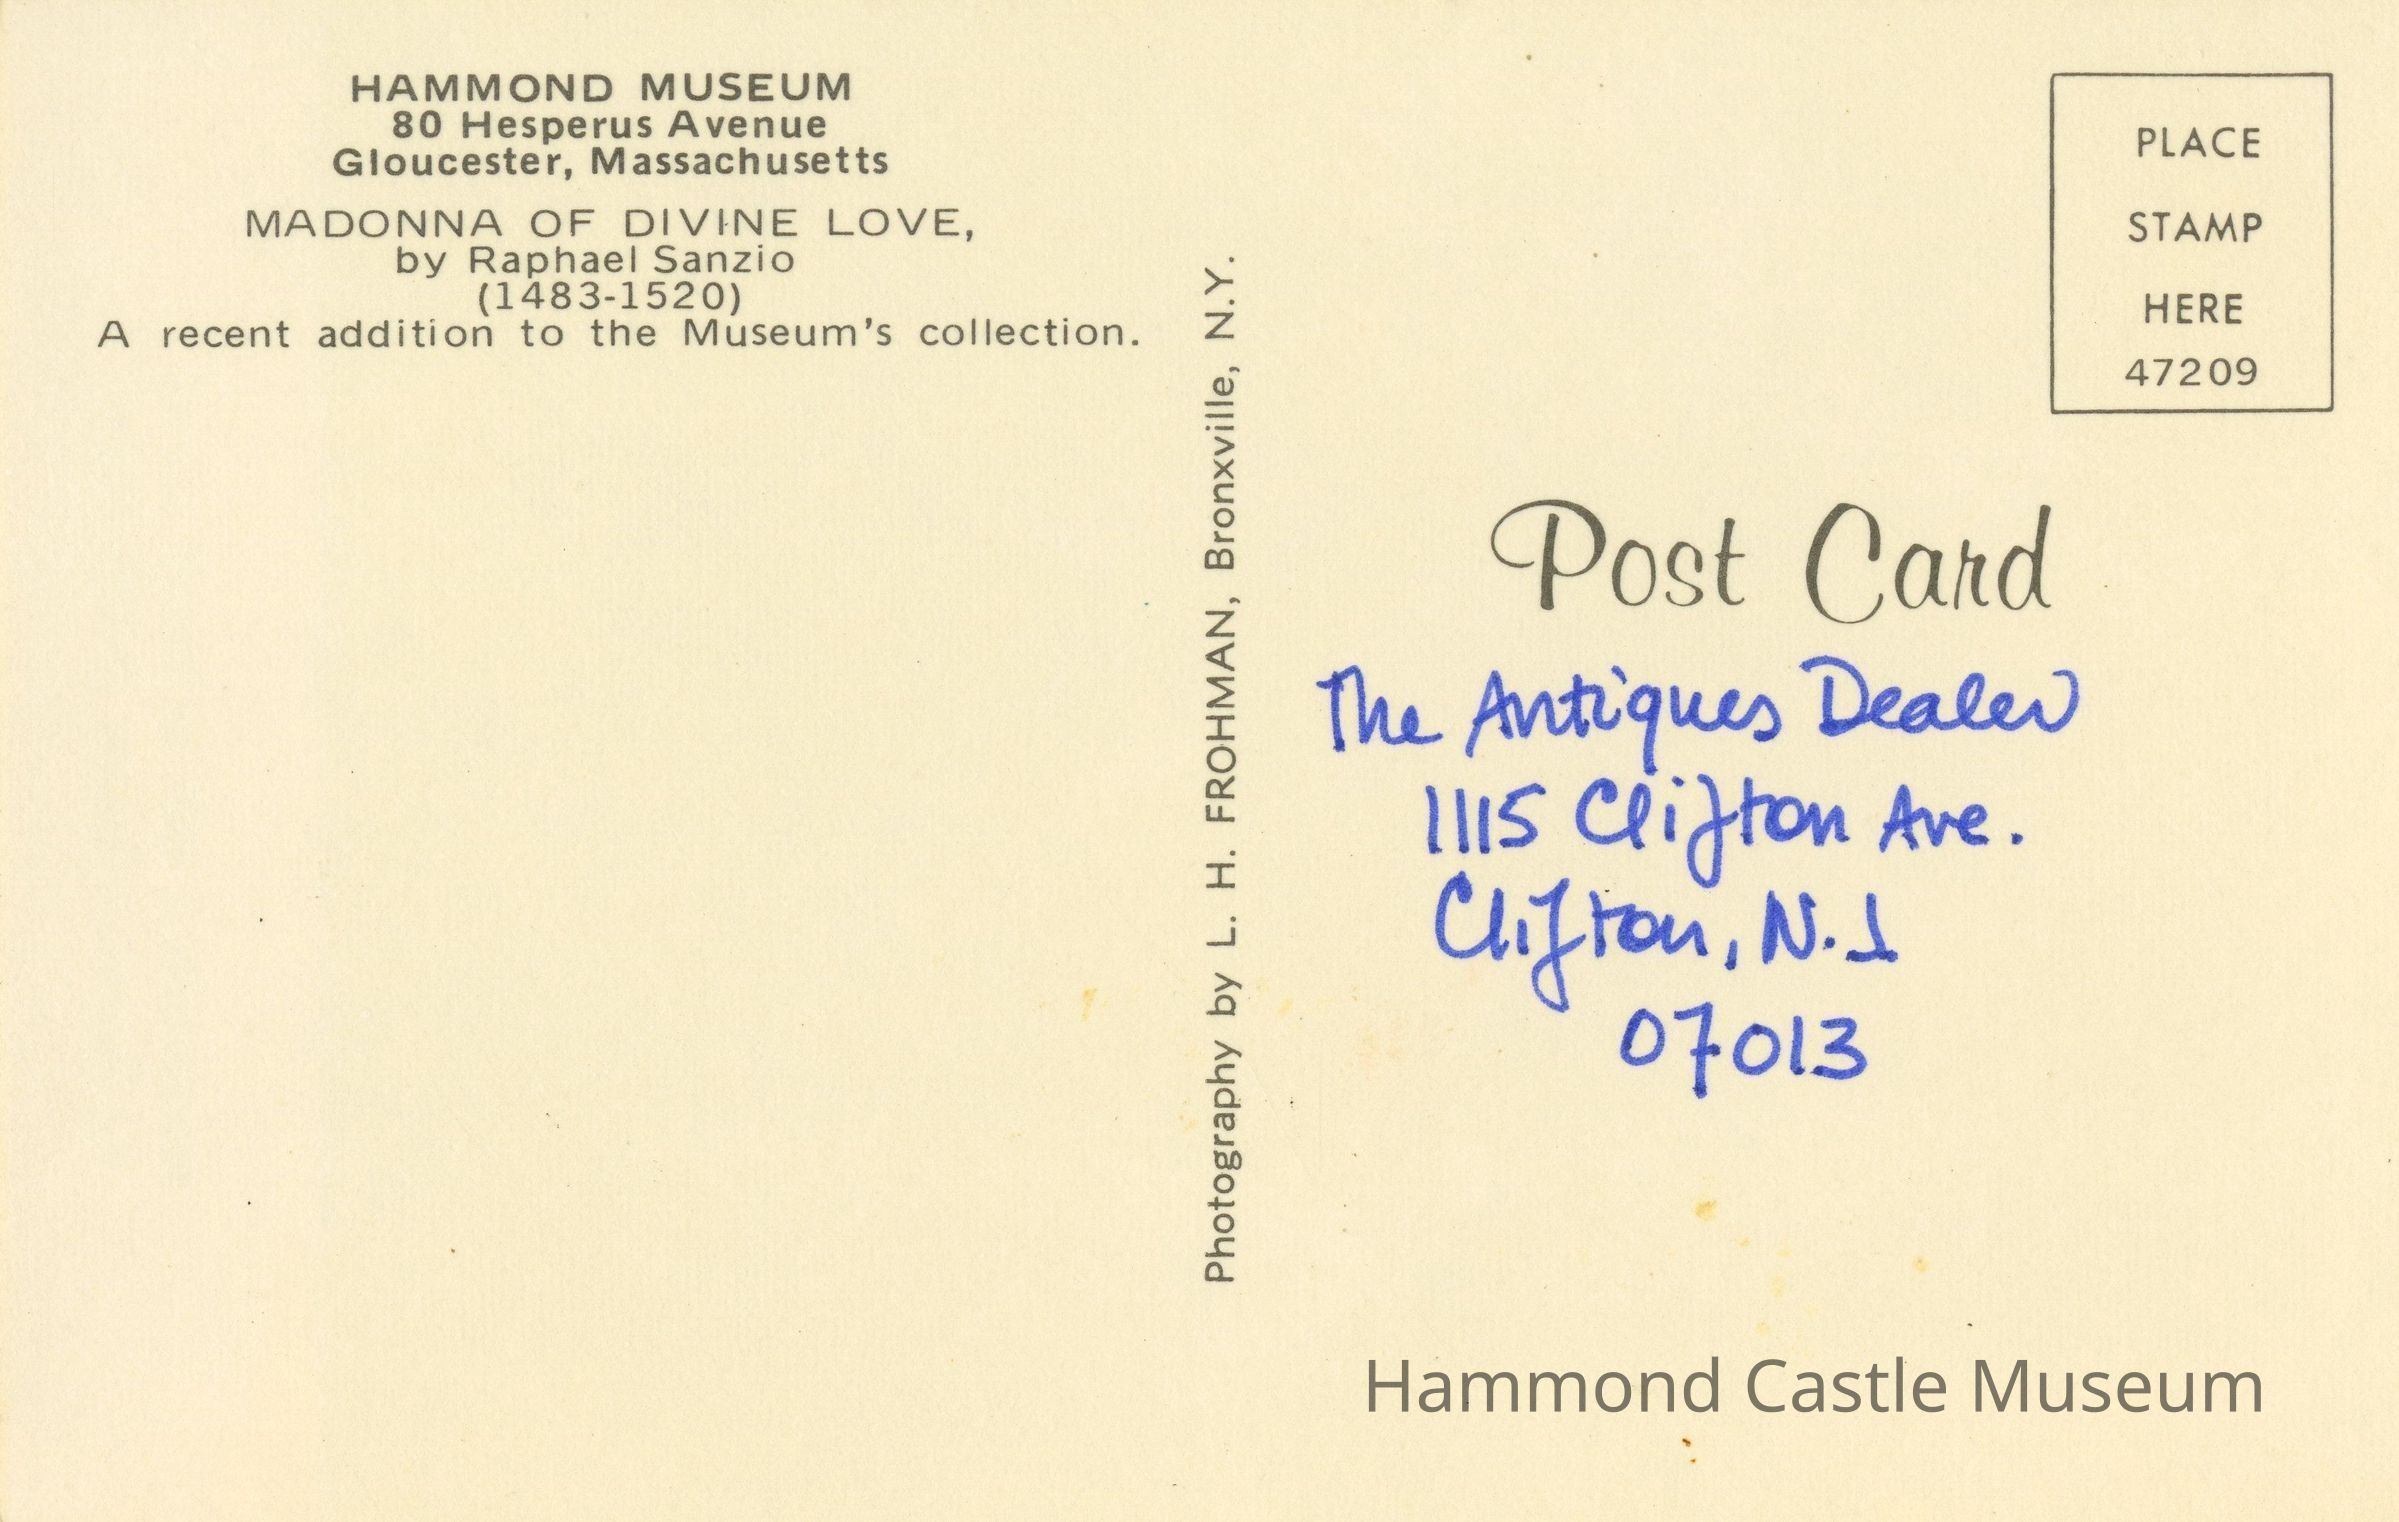 HAMMOND MUSEUM
80 Hesperus Avenue
Gloucester, Massachusetts
MADONNA OF DIVINE LOVE,
by Raphael Sanzio
(1483-1520)
A recent addition to the Museum's collection.
Photography by L. H. FROHMAN, Bronxville, N.Y.
PLACE
STAMP
HERE
47209
Post Card
The Antiques Dealer
1115 Clifton Ave.
Clifton, N.J
07013
Hammond Castle Museum